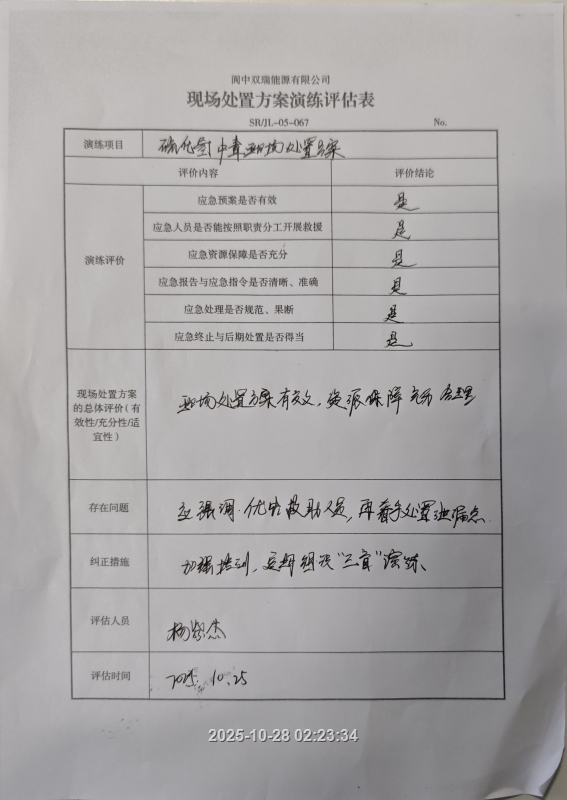 阆中双瑞能源有限公司
现场处置方案演练评估表
SR/JL-05-067 No.
演练项目 硫化氢中毒现场处置方案
评价内容 评价结论
演练评价
应急预案是否有效 是
应急人员是否能按照职责分工开展救援 是
应急资源保障是否充分 是
应急报告与应急指令是否清晰、准确 是
应急处理是否规范、果断 是
应急终止与后期处置是否得当 是
现场处置方案
的总体评价（有
效性/充分性/适
宜性）
现场处置方案有效，资源保障充分合理
存在问题 应强调优先救助人员，再着手处置泄漏点
纠正措施 加强培训，定期组织“三盲”演练
评估人员 杨
评估时间 2025.10.25
2025-10-28 02:23:34